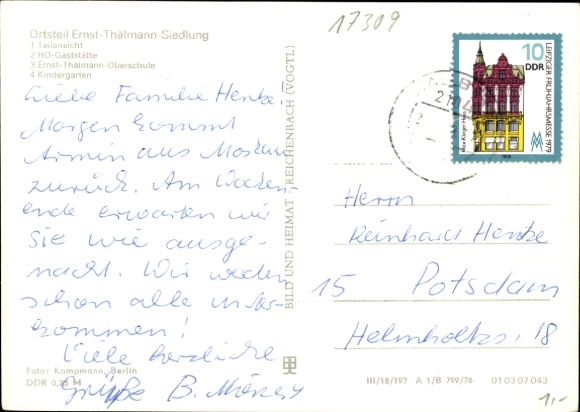 17309
Ortsteil Ernst-Thälmann-Siedlung
1 Teilansicht
2 HO-Gaststätte
3 Ernst-Thälmann-Oberschule
4 Kindergarten
Liebe Familie Henke.
Morgen kommt
Armin aus Moskau
zurück. Am Wochen-
ende erwarten wir
Sie wie ausge-
macht. Wir werden
schon alle unter-
kommen!
Viele herzliche
Grüße B.
Foto: Kampmann, Berlin
DDR 0,25 M
BILD UND HEIMAT REICHENBACH (VOGTL)
10
DDR
LEIPZIGER FRÜHJAHRSMESSE 1979
Herrn
Reinhard Henke
15 Potsdam
Helmholtzs. 18
III/18/197 A 1/B 799/78 01 03 07 043
1,-